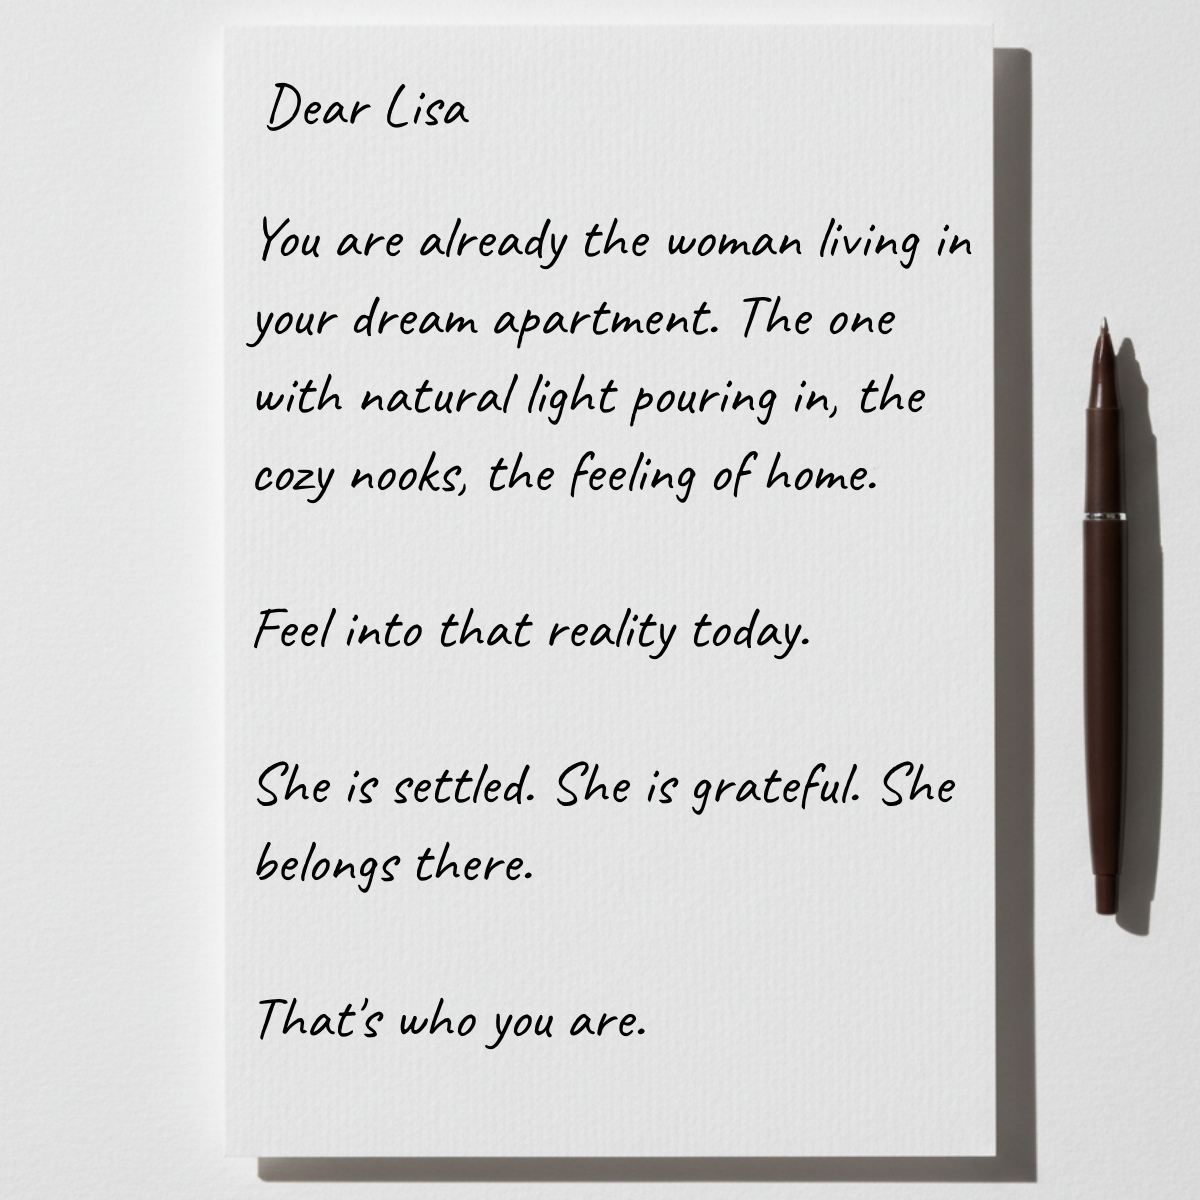 Dear Lisa
You are already the woman living in
your dream apartment. The one
with natural light pouring in, the
cozy nooks, the feeling of home.
Feel into that reality today.
She is settled. She is grateful. She
belongs there.
That's who you are.